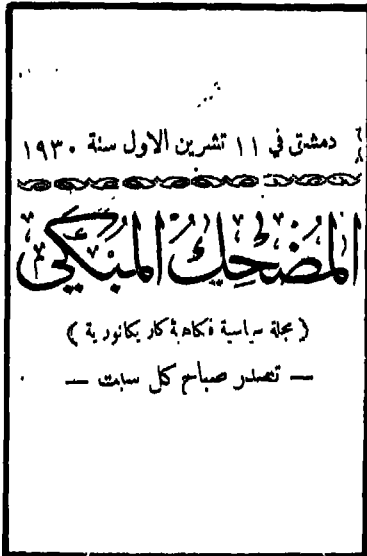 دمشق في ١١ تشرين الاول سنة ١٩٣٠
المُضْحِك المُبْكِي
( مجلة سياسية فكاهية كاريكاتورية )
— تصدر صباح كل سبت —